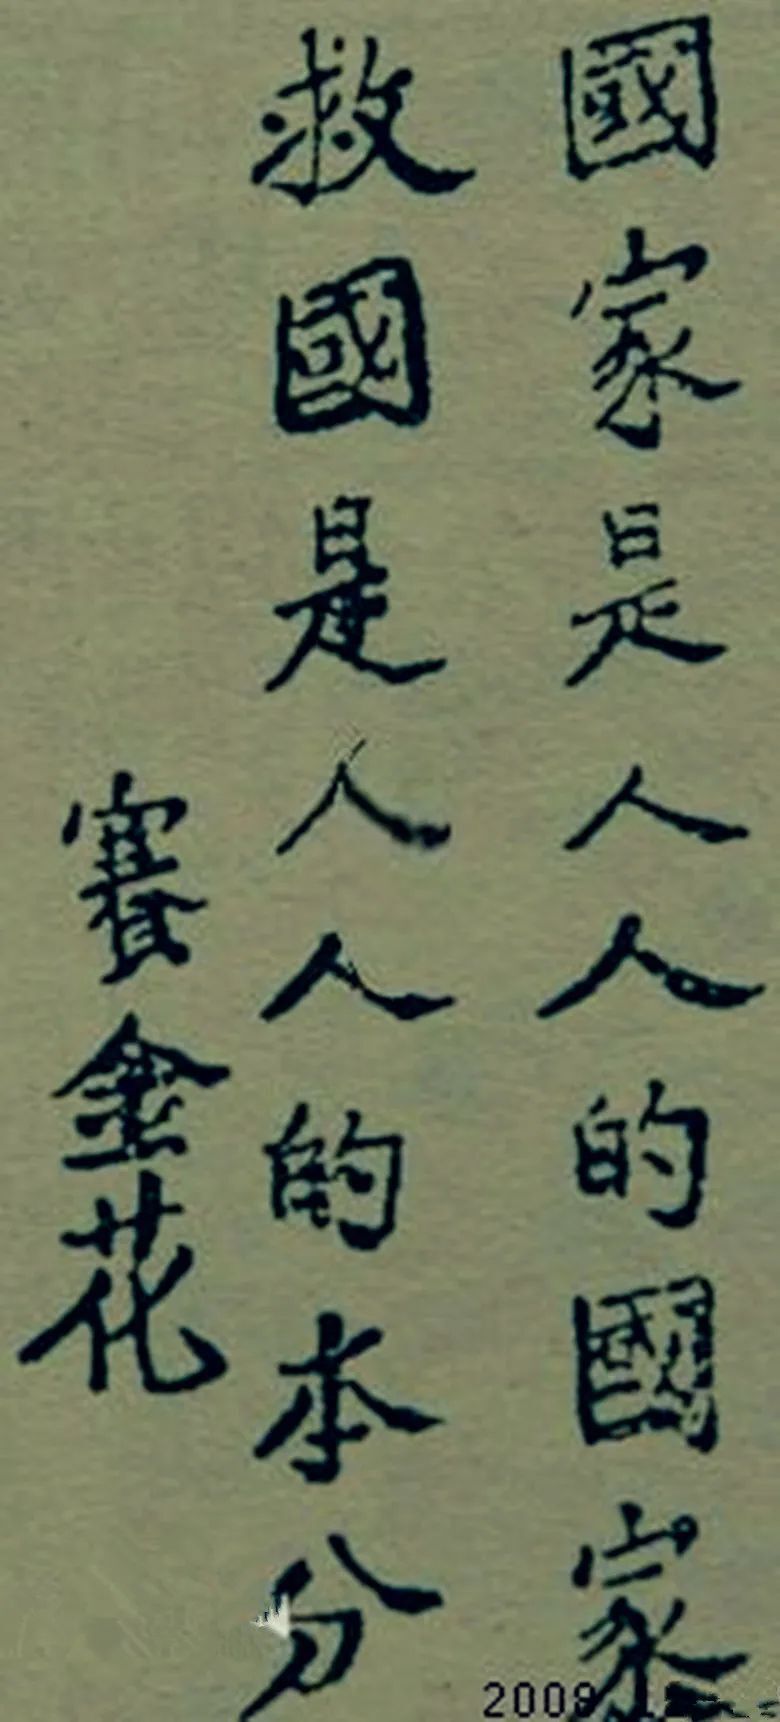 國家是人人的國家
救國是人人的本分
賽金花
2009